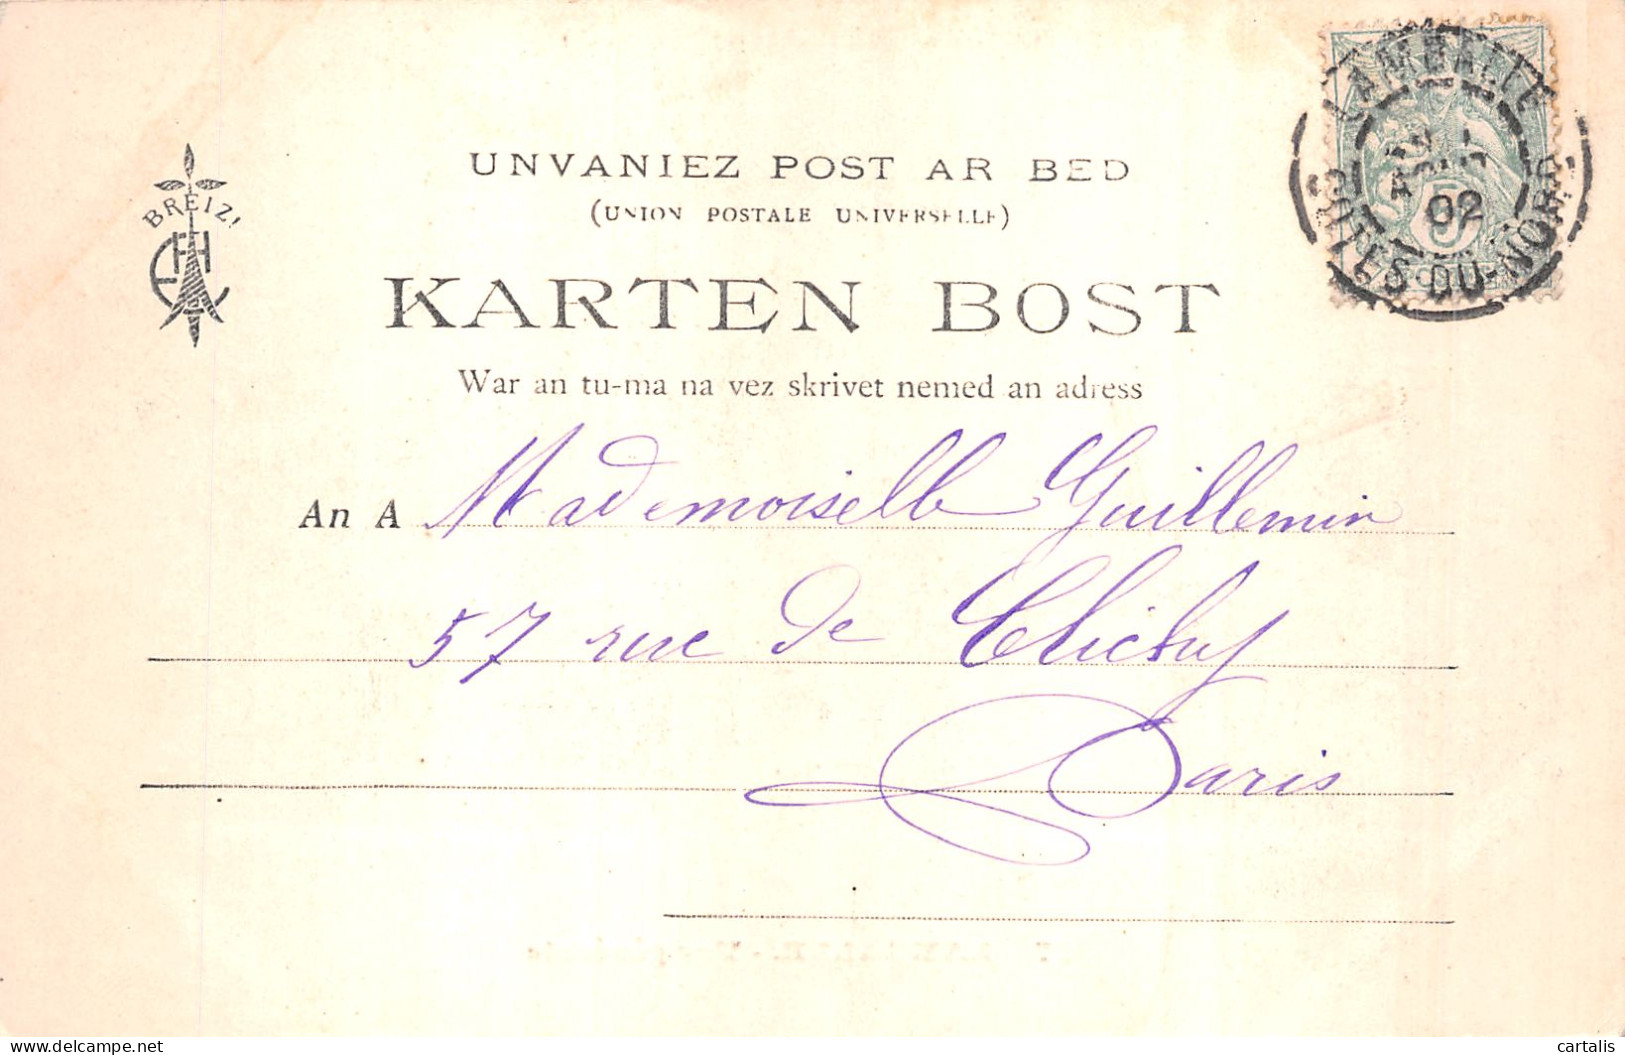 UNVANIEZ POST AR BED
(UNION POSTALE UNIVERSELLE)
BREIZ!
KARTEN BOST
War an tu-ma na vez skrivet nemed an adress
An A Mademoiselle Guillemin
57 rue de Clichy
Paris
LAMBALLE
02
COTES-DU-NORD
5
delcampe.net
cartalis